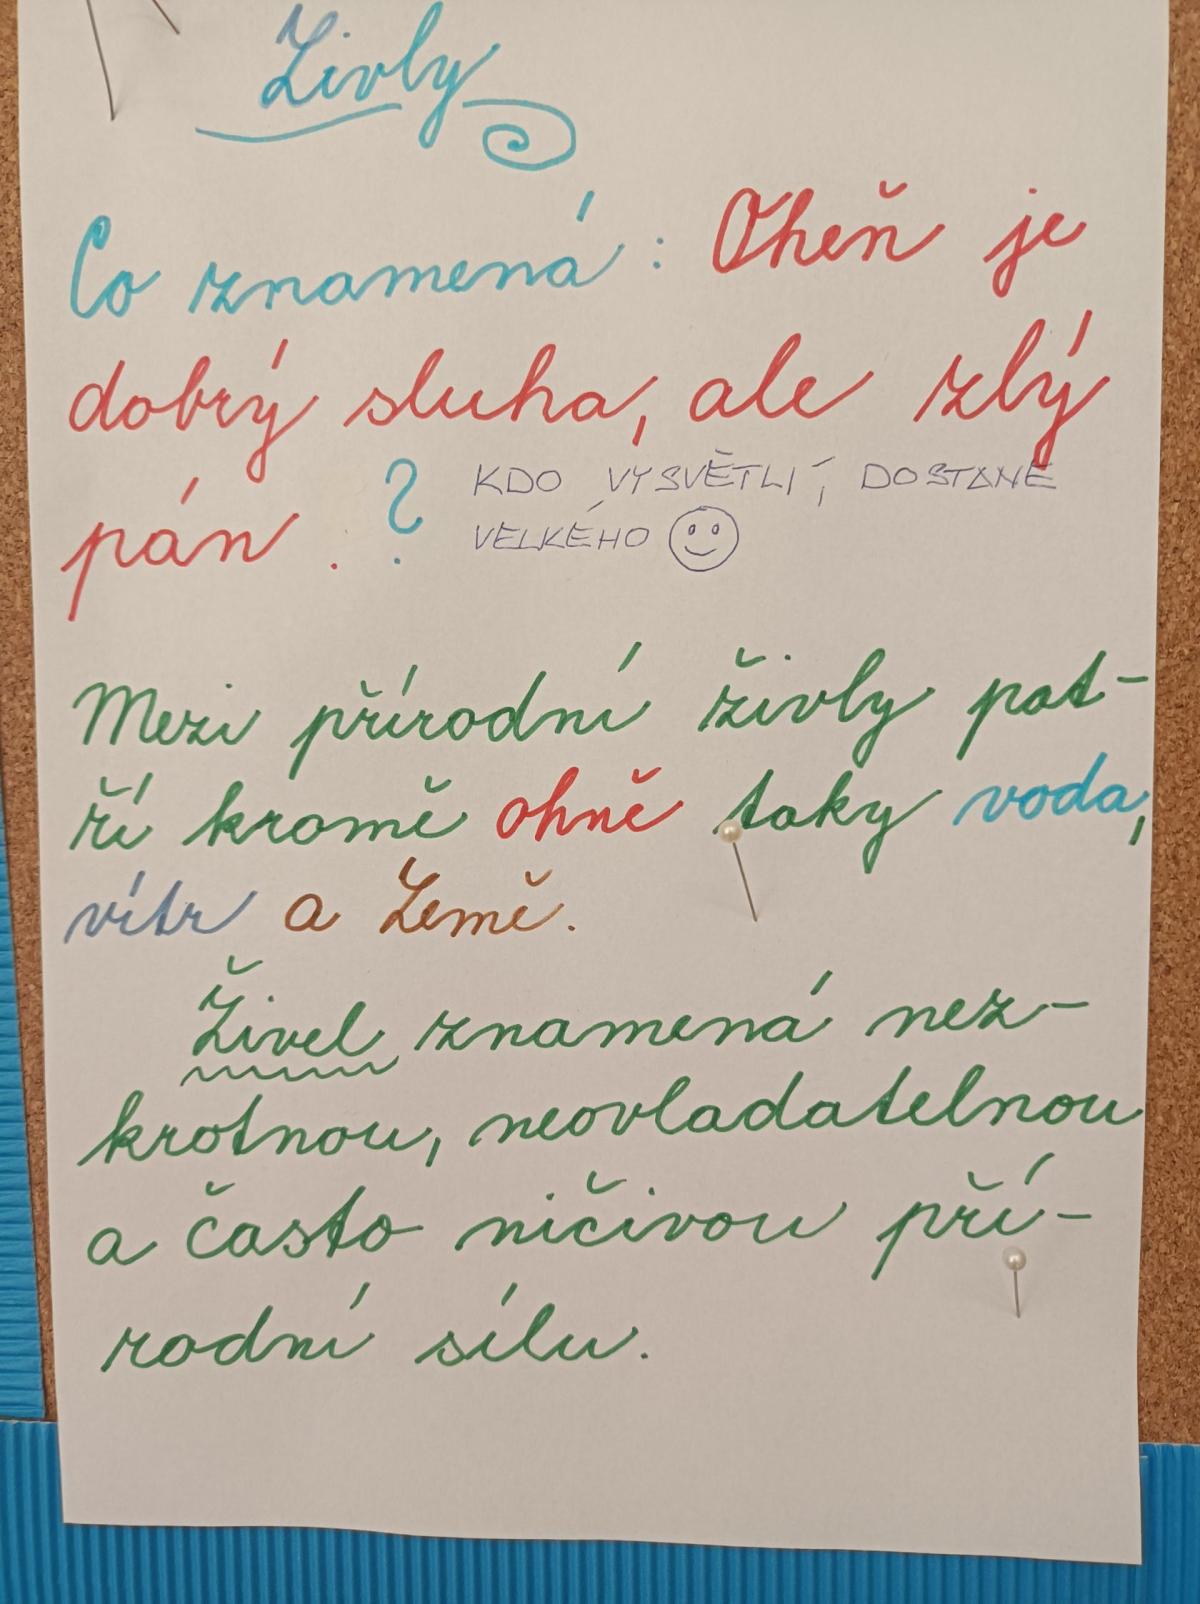 Živly
Co znamená: Oheň je
dobrý sluha, ale zlý
pán. ?
KDO VYSVĚTLÍ, DOSTANE
VELKÉHO
Mezi přírodní živly pat-
ří kromě ohně taky voda,
vítr a Země.
Živel znamená nez-
krotnou, neovladatelnou
a často ničivou pří-
rodní sílu.